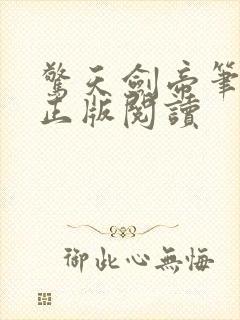 驚天劍帝筆
正版閱讀
御此心無悔